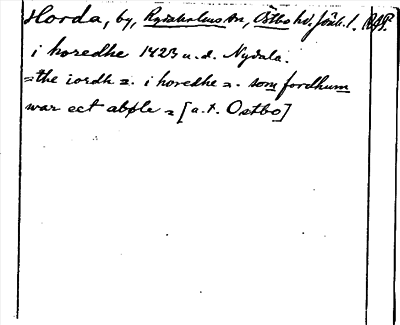 Horda, by, Rydaholms sn, Östbo hd. Jönk. l.
i horedhe 1423 u.d. Nydala.
=the iordh =. i horedhe =. som fordhum
war ect abþle = [a.t. Ostbo]